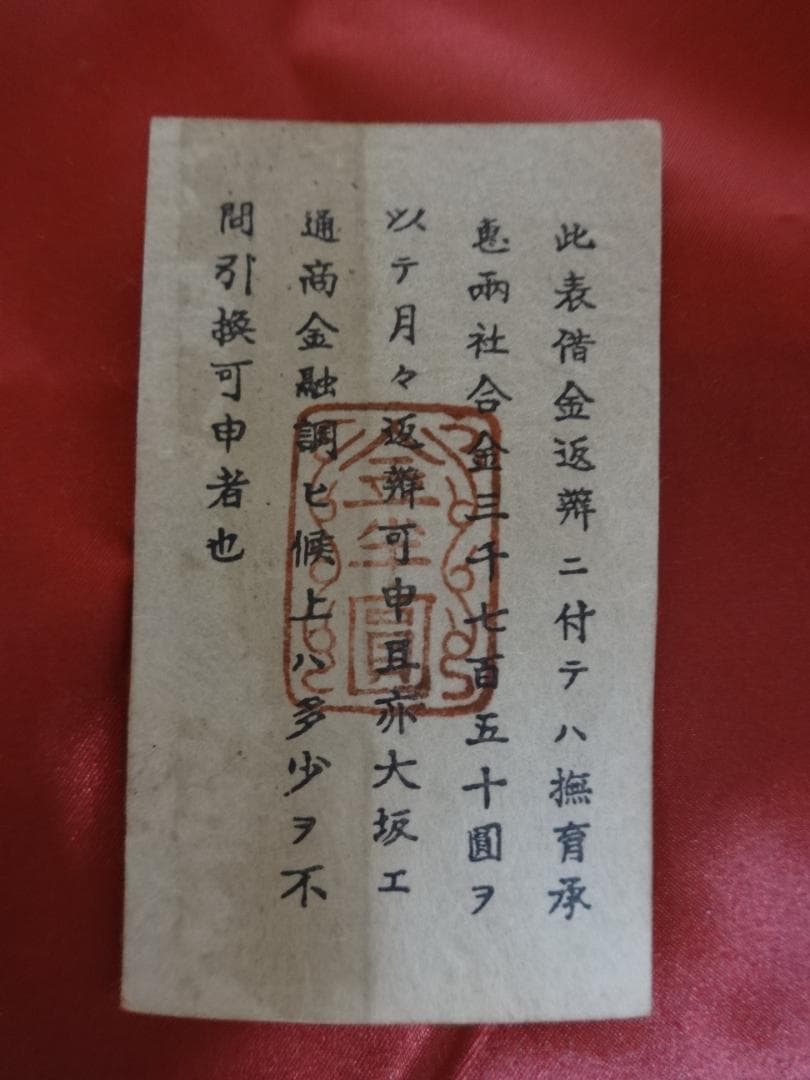 此表借金返辨ニ付テハ撫育承
恵兩社合金三千七百五十圓ヲ
以テ月々返辨可申且亦大坂エ
通商金融調ヒ候上ハ多少ヲ不
問引換可申者也
金五圓